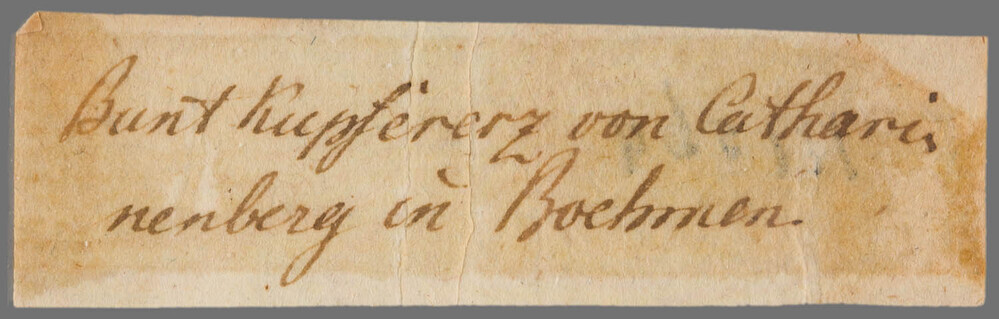 Bunt Kupfererz von Cathari„
nenberg in Boehmen.